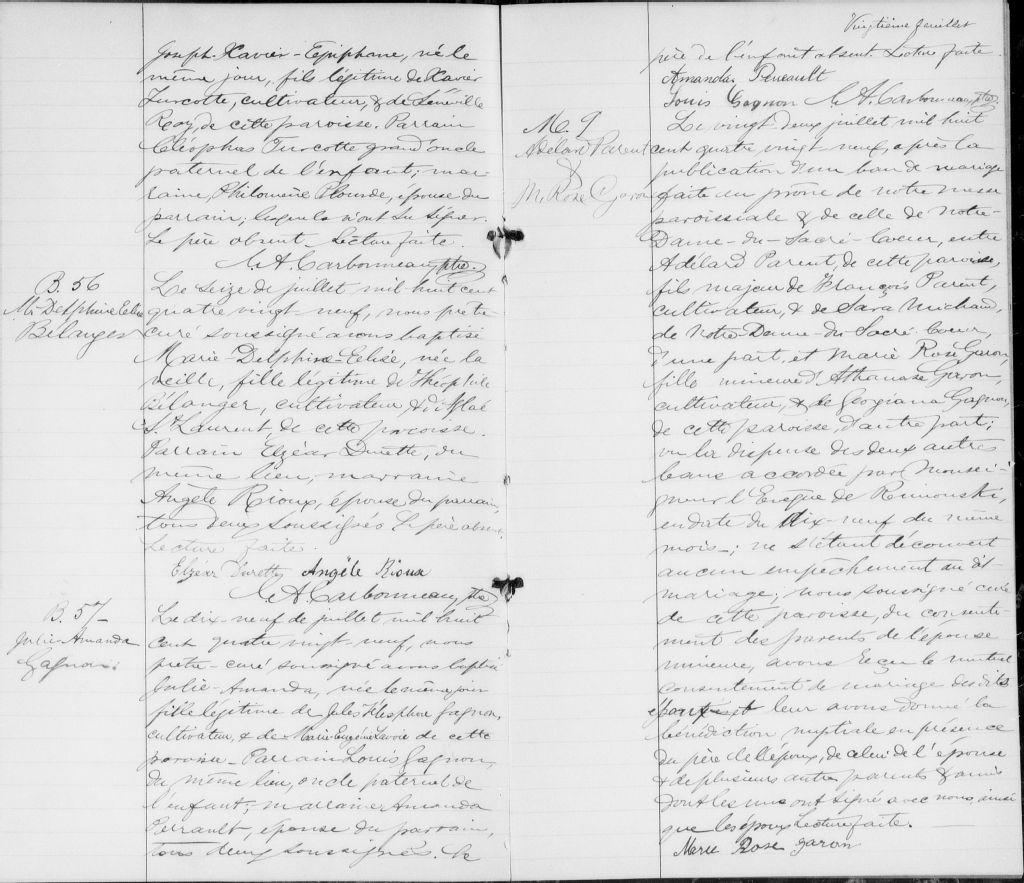 Joseph-Xavier-Epiphane, né le
même jour, fils légitime de Xavier
Turcotte, cultivateur, & de
Roy, de cette paroisse. Parrain
Cléophas Turcotte grand'oncle
paternel de l'enfant; mar-
raine, Philomène Plourde, épouse du
parrain; lesquels n'ont su signer.
Le père absent. Lecture faite.
A. Carbonneau, ptre.
B. 56
M. Delphine
Bélanger
Le seize de juillet mil-huit-cent
quatre vingt-neuf, nous prêtre-
curé soussigné avons baptisé
Marie-Delphine-Elisé, née la
veille, fille légitime de Théophile
Bélanger, cultivateur, & de
St Laurent de cette paroisse.
Parrain Elzéar Durette, du
même lieu, marraine
Angèle Rioux, épouse du parrain,
tous deux soussignés Le père absent.
Lecture faite.
Elzéar Durette Angèle Rioux
A. Carbonneau, ptre
B. 57
Julie-Amanda
Gagnon.
Le dix-neuf de juillet mil huit
cent quatre vingt-neuf, nous
prêtre-curé soussigné avons baptisé
Julie-Amanda, née le même jour
fille légitime de Jules Gagnon,
cultivateur, & de Marie-Eugénie Lavoie de cette
paroisse. Parrain Louis Gagnon,
du même lieu, oncle paternel de
l'enfant, marraine Amanda
Perrault, épouse du parrain,
tous deux soussignés. Le
Vingtième feuillet
père de l'enfant absent. Lecture faite.
Amanda
Louis Gagnon A. Carbonneau, ptre.
M. 9
Adélard Parent
&
M. Rose Garon
Le vingt-deux juillet mil huit
cent quatre vingt neuf, après la
publication d'un ban de mariage
faite au prône de notre messe
paroissiale & de celle de Notre-
Dame-du-Sacré-Coeur, entre
Adélard Parent, de cette paroisse,
fils majeur de François Parent,
cultivateur, & de Sara Michaud,
de Notre-Dame-du Sacré-Coeur,
d'une part, et Marie Rose Garon
fille mineure d'Athanase Garon,
cultivateur, & de Georgiana Gagnon,
de cette paroisse, d'autre part;
vu la dispense des deux autres
bans accordée par Monsei-
gneur l'Evêque de Rimouski,
en date du dix-neuf du même
mois; ne s'étant découvert
aucun empêchement au dit
mariage; nous soussigné curé
de cette paroisse, du consente-
ment des parents de l'épouse
mineure, avons reçu le mutuel
consentement de mariage des dits
époux et leur avons donné la
bénédiction nuptiale en présence
du père de l'époux, de celui de l'épouse
& de plusieurs autres parents & amis
dont les uns ont signé avec nous, ainsi
que les époux Lecture faite.
Marie Rose Garon